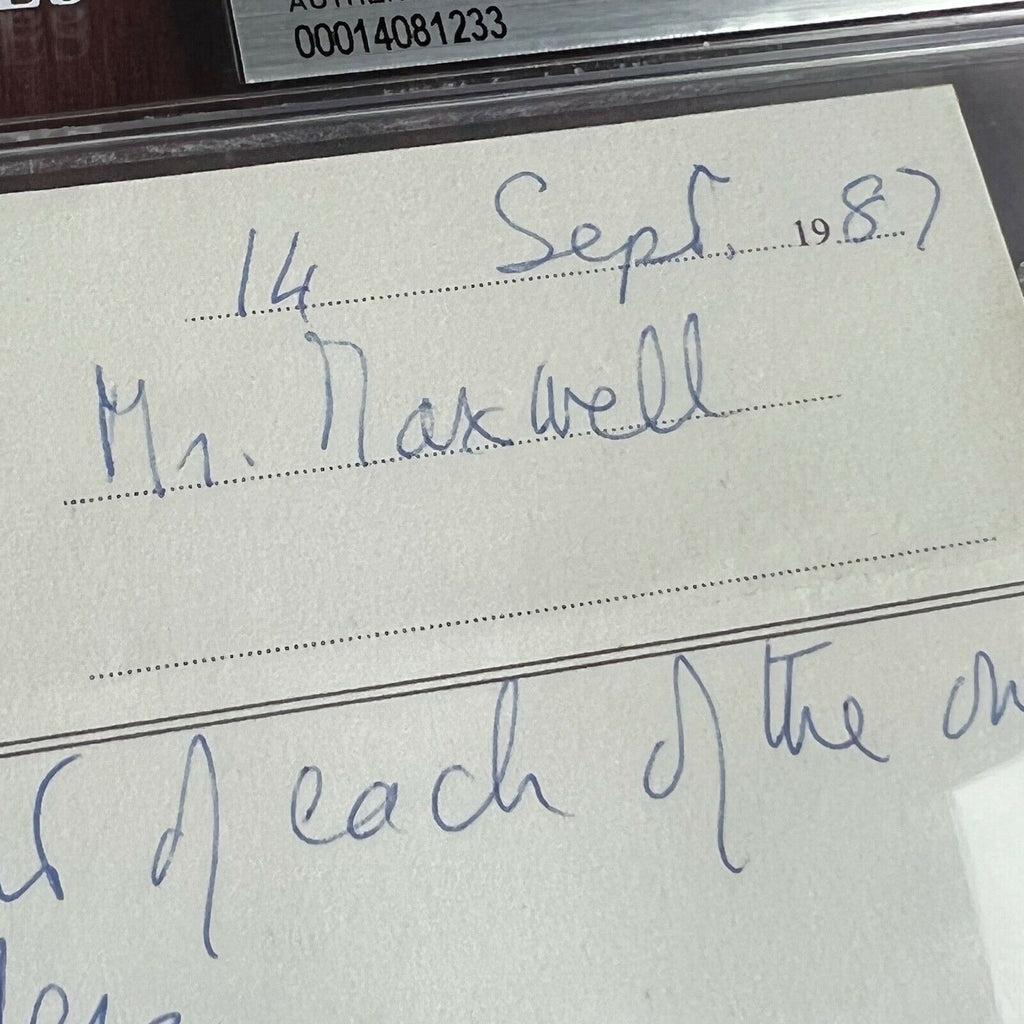 00014081233
14 Sept. 1987
Mr. Maxwell
of each of the